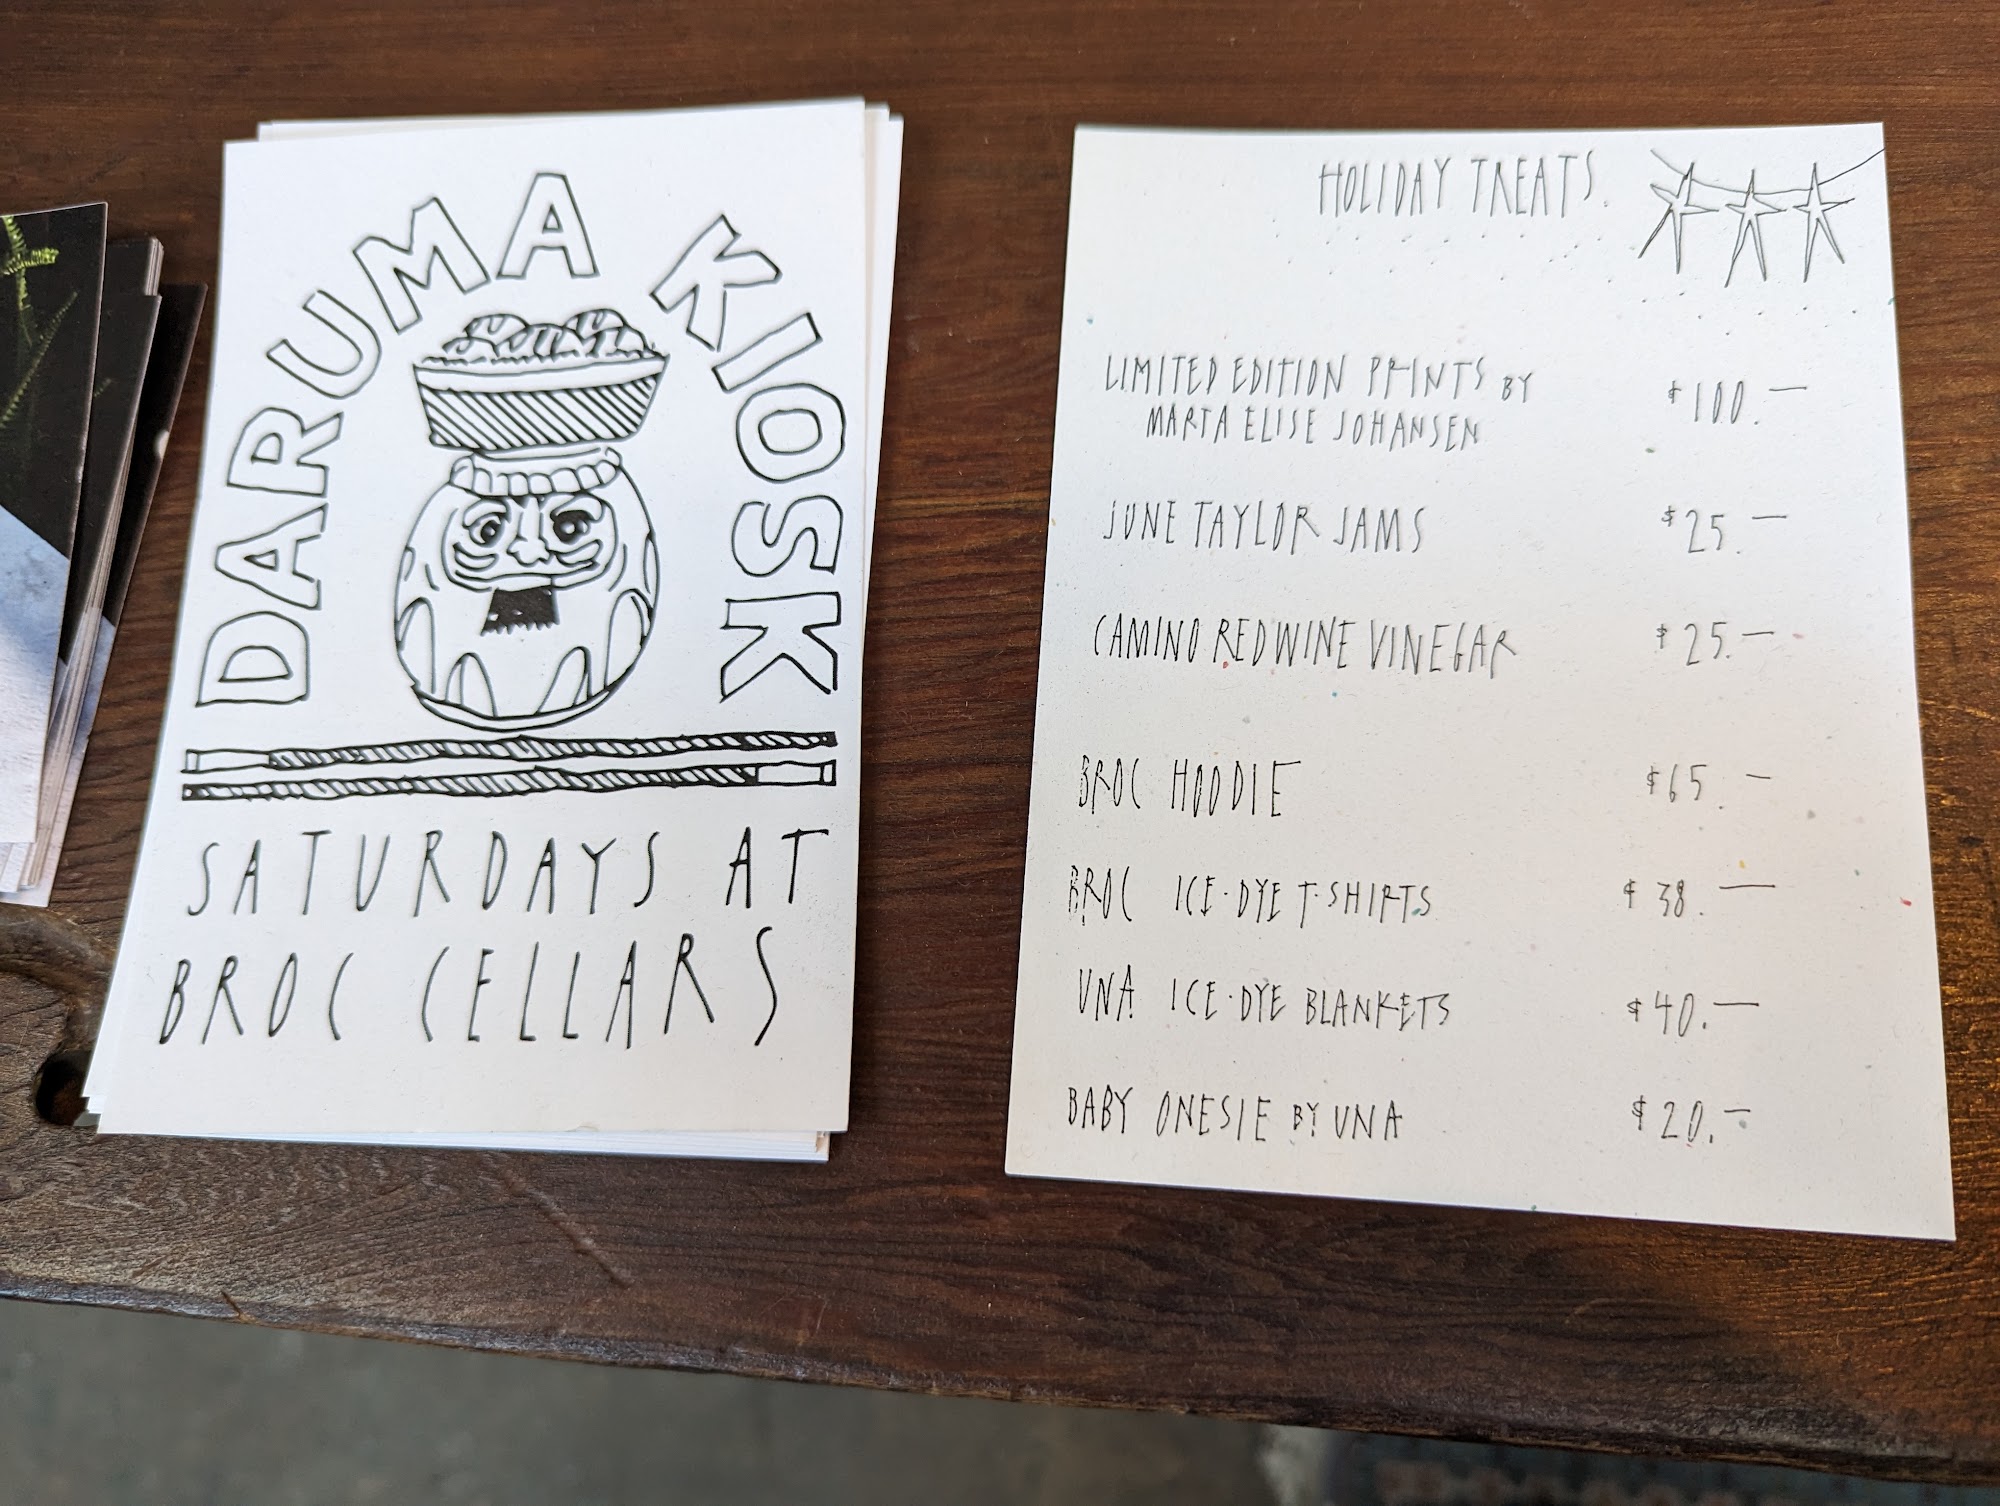 DARUMA KIOSK
SATURDAYS AT
BROC CELLARS
HOLIDAY TREATS.
LIMITED EDITION PRINTS BY $100.—
MARTA ELISE JOHANSEN
JUNE TAYLOR JAMS $25.—
CAMINO RED WINE VINEGAR $25.—
BROC HOODIE $65.—
BROC ICE-DYE T-SHIRTS $38.—
UNA ICE-DYE BLANKETS $40.—
BABY ONESIE BY UNA $20.—